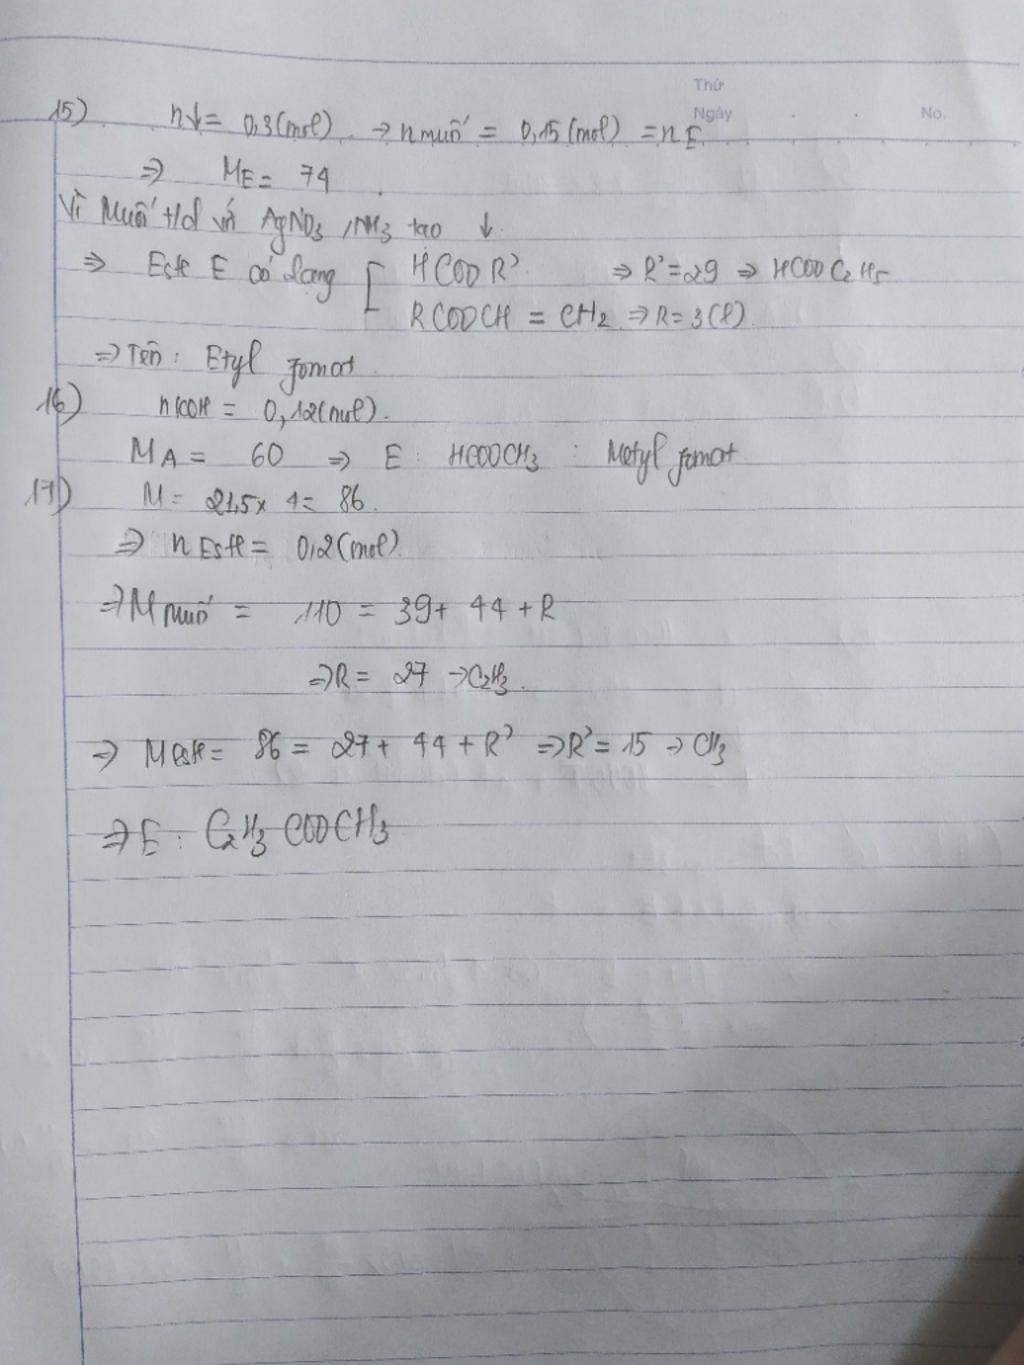 Thứ
Ngày No.
15) n↓ = 0,3 (mol) → n muối = 0,15 (mol) = n E
⇒ ME = 74
Vì Muối t/d với AgNO3 /NH3 tạo ↓
⇒ Este E có dạng [ HCOOR' ⇒ R' = 29 ⇒ HCOOC2H5
RCOOCH = CH2 ⇒ R = 3 (l)
⇒ Tên : Etyl fomat
16) nKOH = 0,12 (mol).
MA = 60 ⇒ E : HCOOCH3 : Metyl fomat
17) M = 21,5 x 4 = 86.
⇒ n Este = 0,2 (mol).
⇒ M muối = 110 = 39 + 44 + R
⇒ R = 27 → C2H3.
⇒ M este = 86 = 27 + 44 + R' ⇒ R' = 15 → CH3
⇒ E : C2H3COOCH3